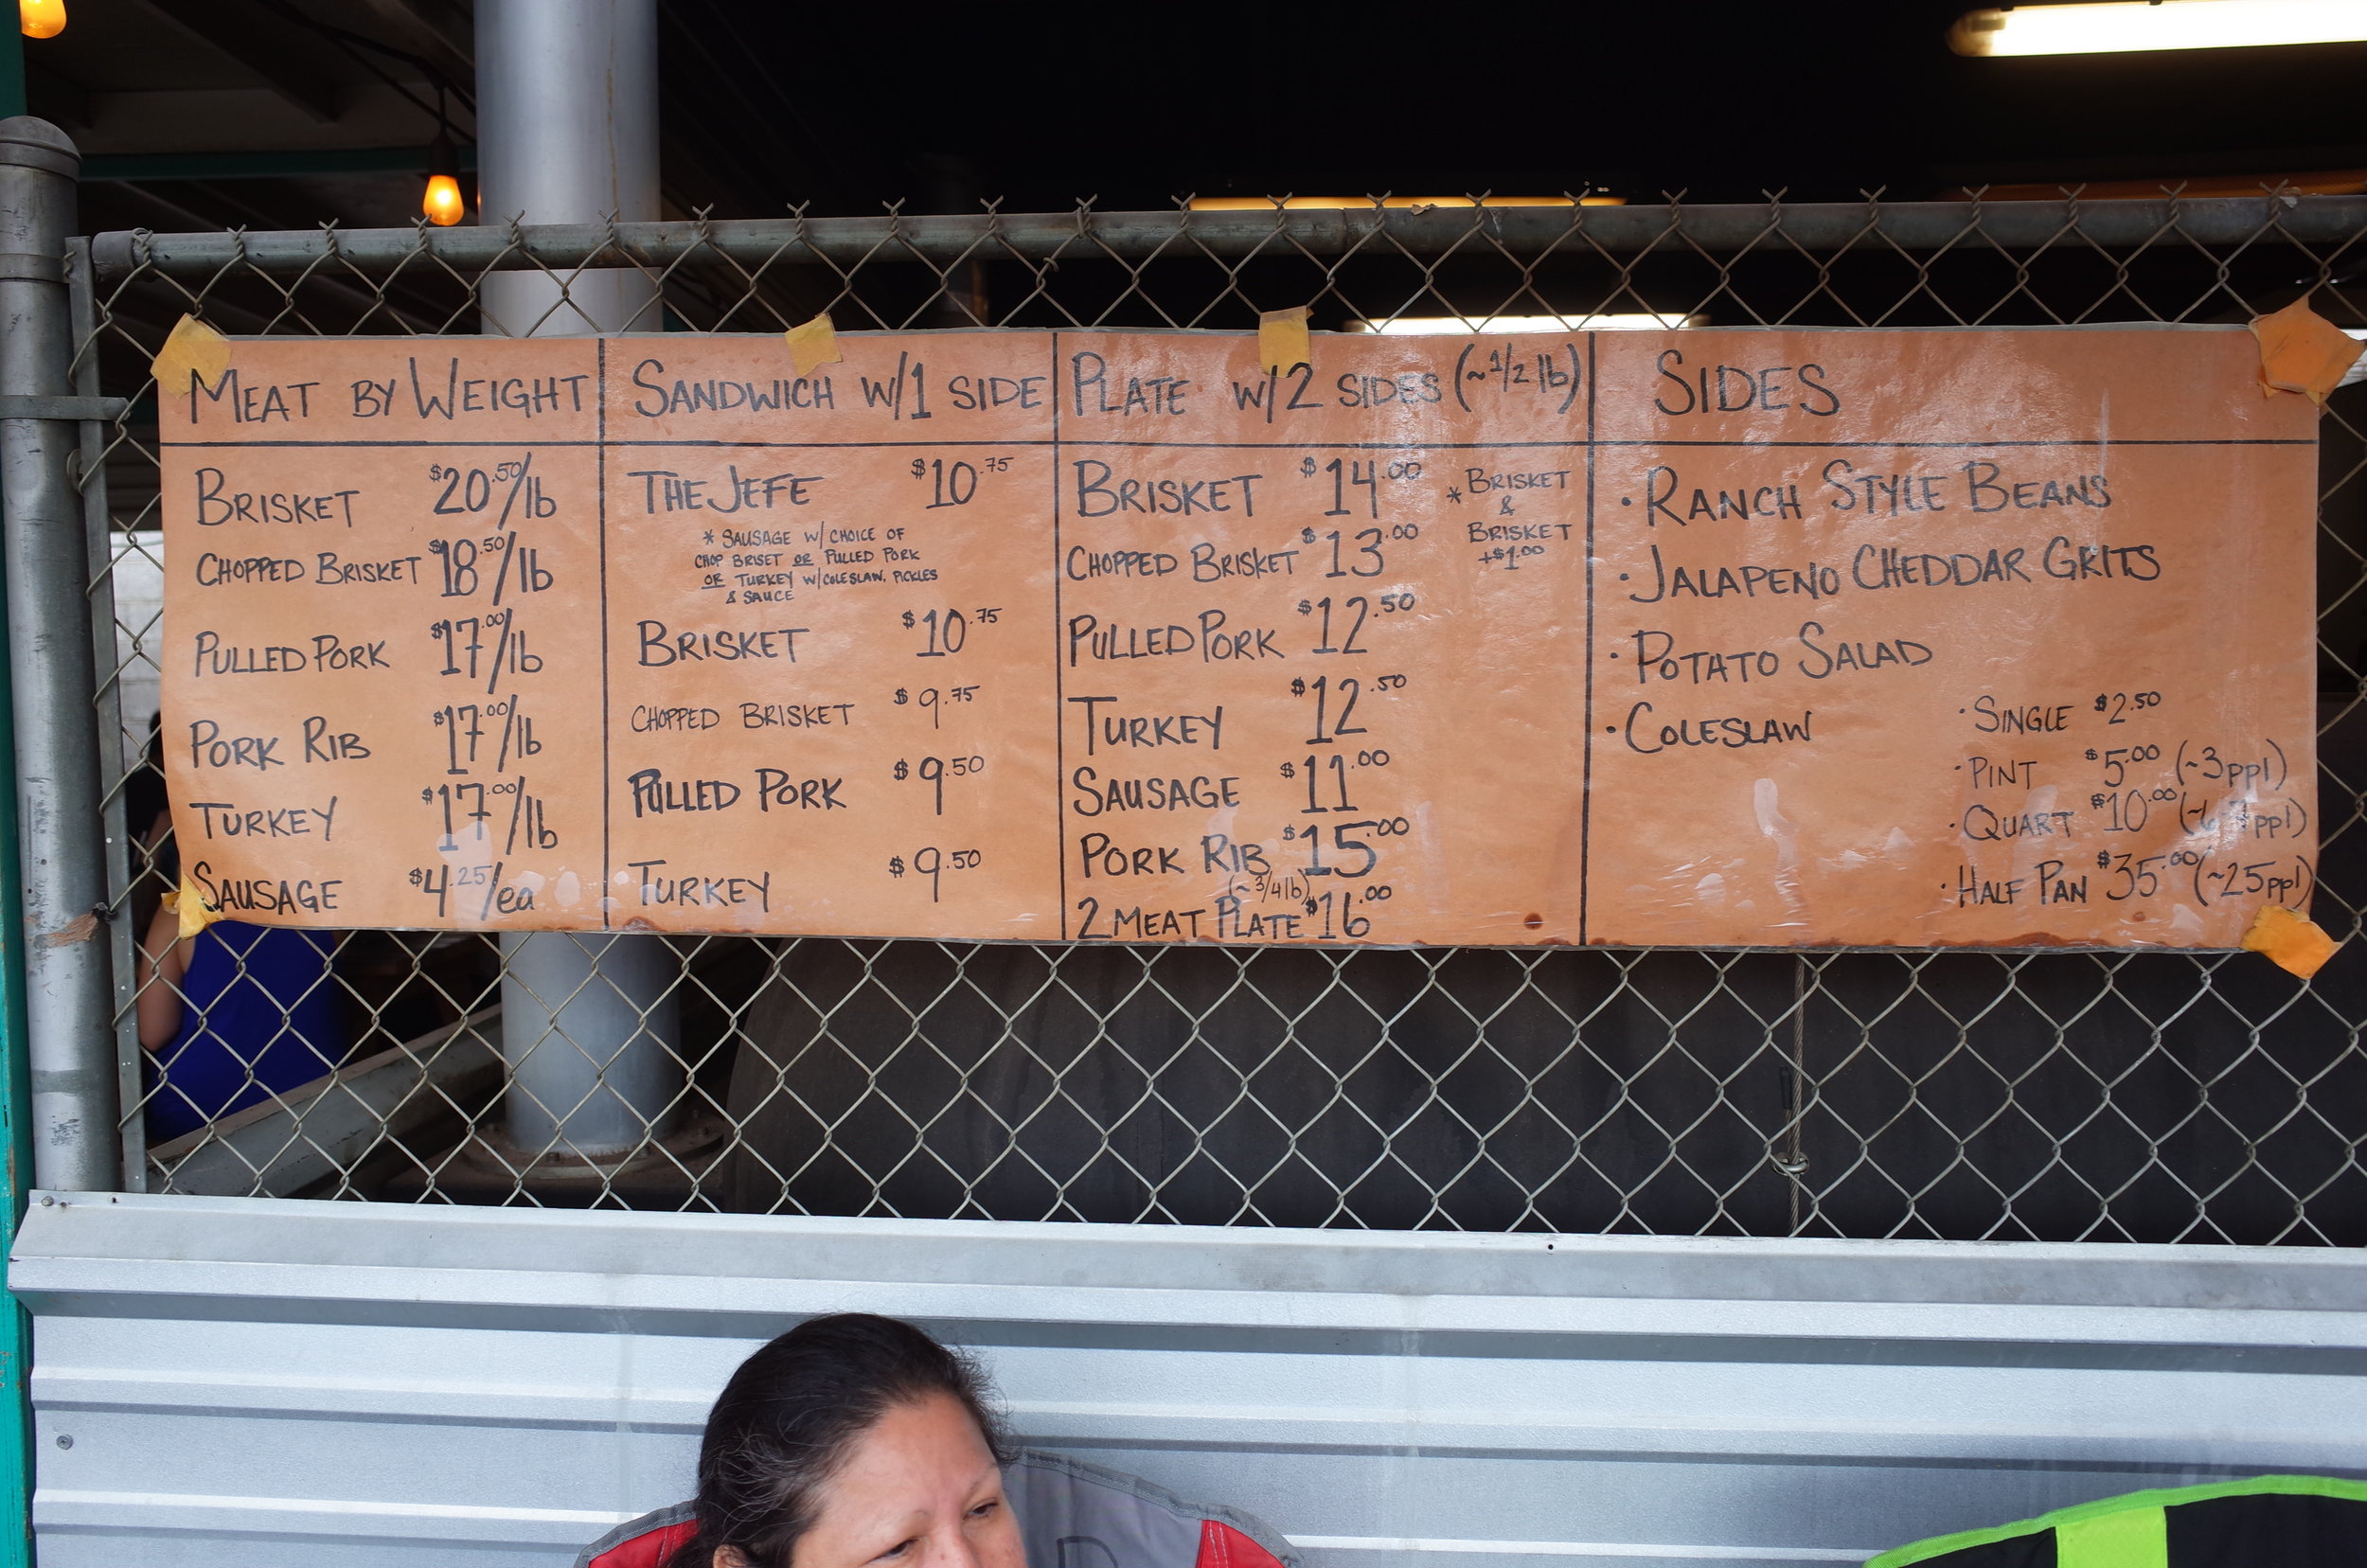 MEAT BY WEIGHT
BRISKET $20.50/lb
CHOPPED BRISKET $18.50/lb
PULLED PORK $17.00/lb
PORK RIB $17.00/lb
TURKEY $17.00/lb
SAUSAGE $4.25/ea
SANDWICH W/1 SIDE
THE JEFE $10.75
* SAUSAGE W/ CHOICE OF
CHOP BRISET OR PULLED PORK
OR TURKEY W/COLESLAW, PICKLES
& SAUCE
BRISKET $10.75
CHOPPED BRISKET $9.75
PULLED PORK $9.50
TURKEY $9.50
PLATE W/2 SIDES (~1/2 lb)
BRISKET $14.00
* BRISKET
&
BRISKET
+$1.00
CHOPPED BRISKET $13.00
PULLED PORK $12.50
TURKEY $12.50
SAUSAGE $11.00
PORK RIB $15.00
(~3/4 lb)
2 MEAT PLATE $16.00
SIDES
· RANCH STYLE BEANS
· JALAPENO CHEDDAR GRITS
· POTATO SALAD
· COLESLAW
· SINGLE $2.50
· PINT $5.00 (~3ppl)
· QUART $10.00 ppl)
· HALF PAN $35.00 (~25ppl)